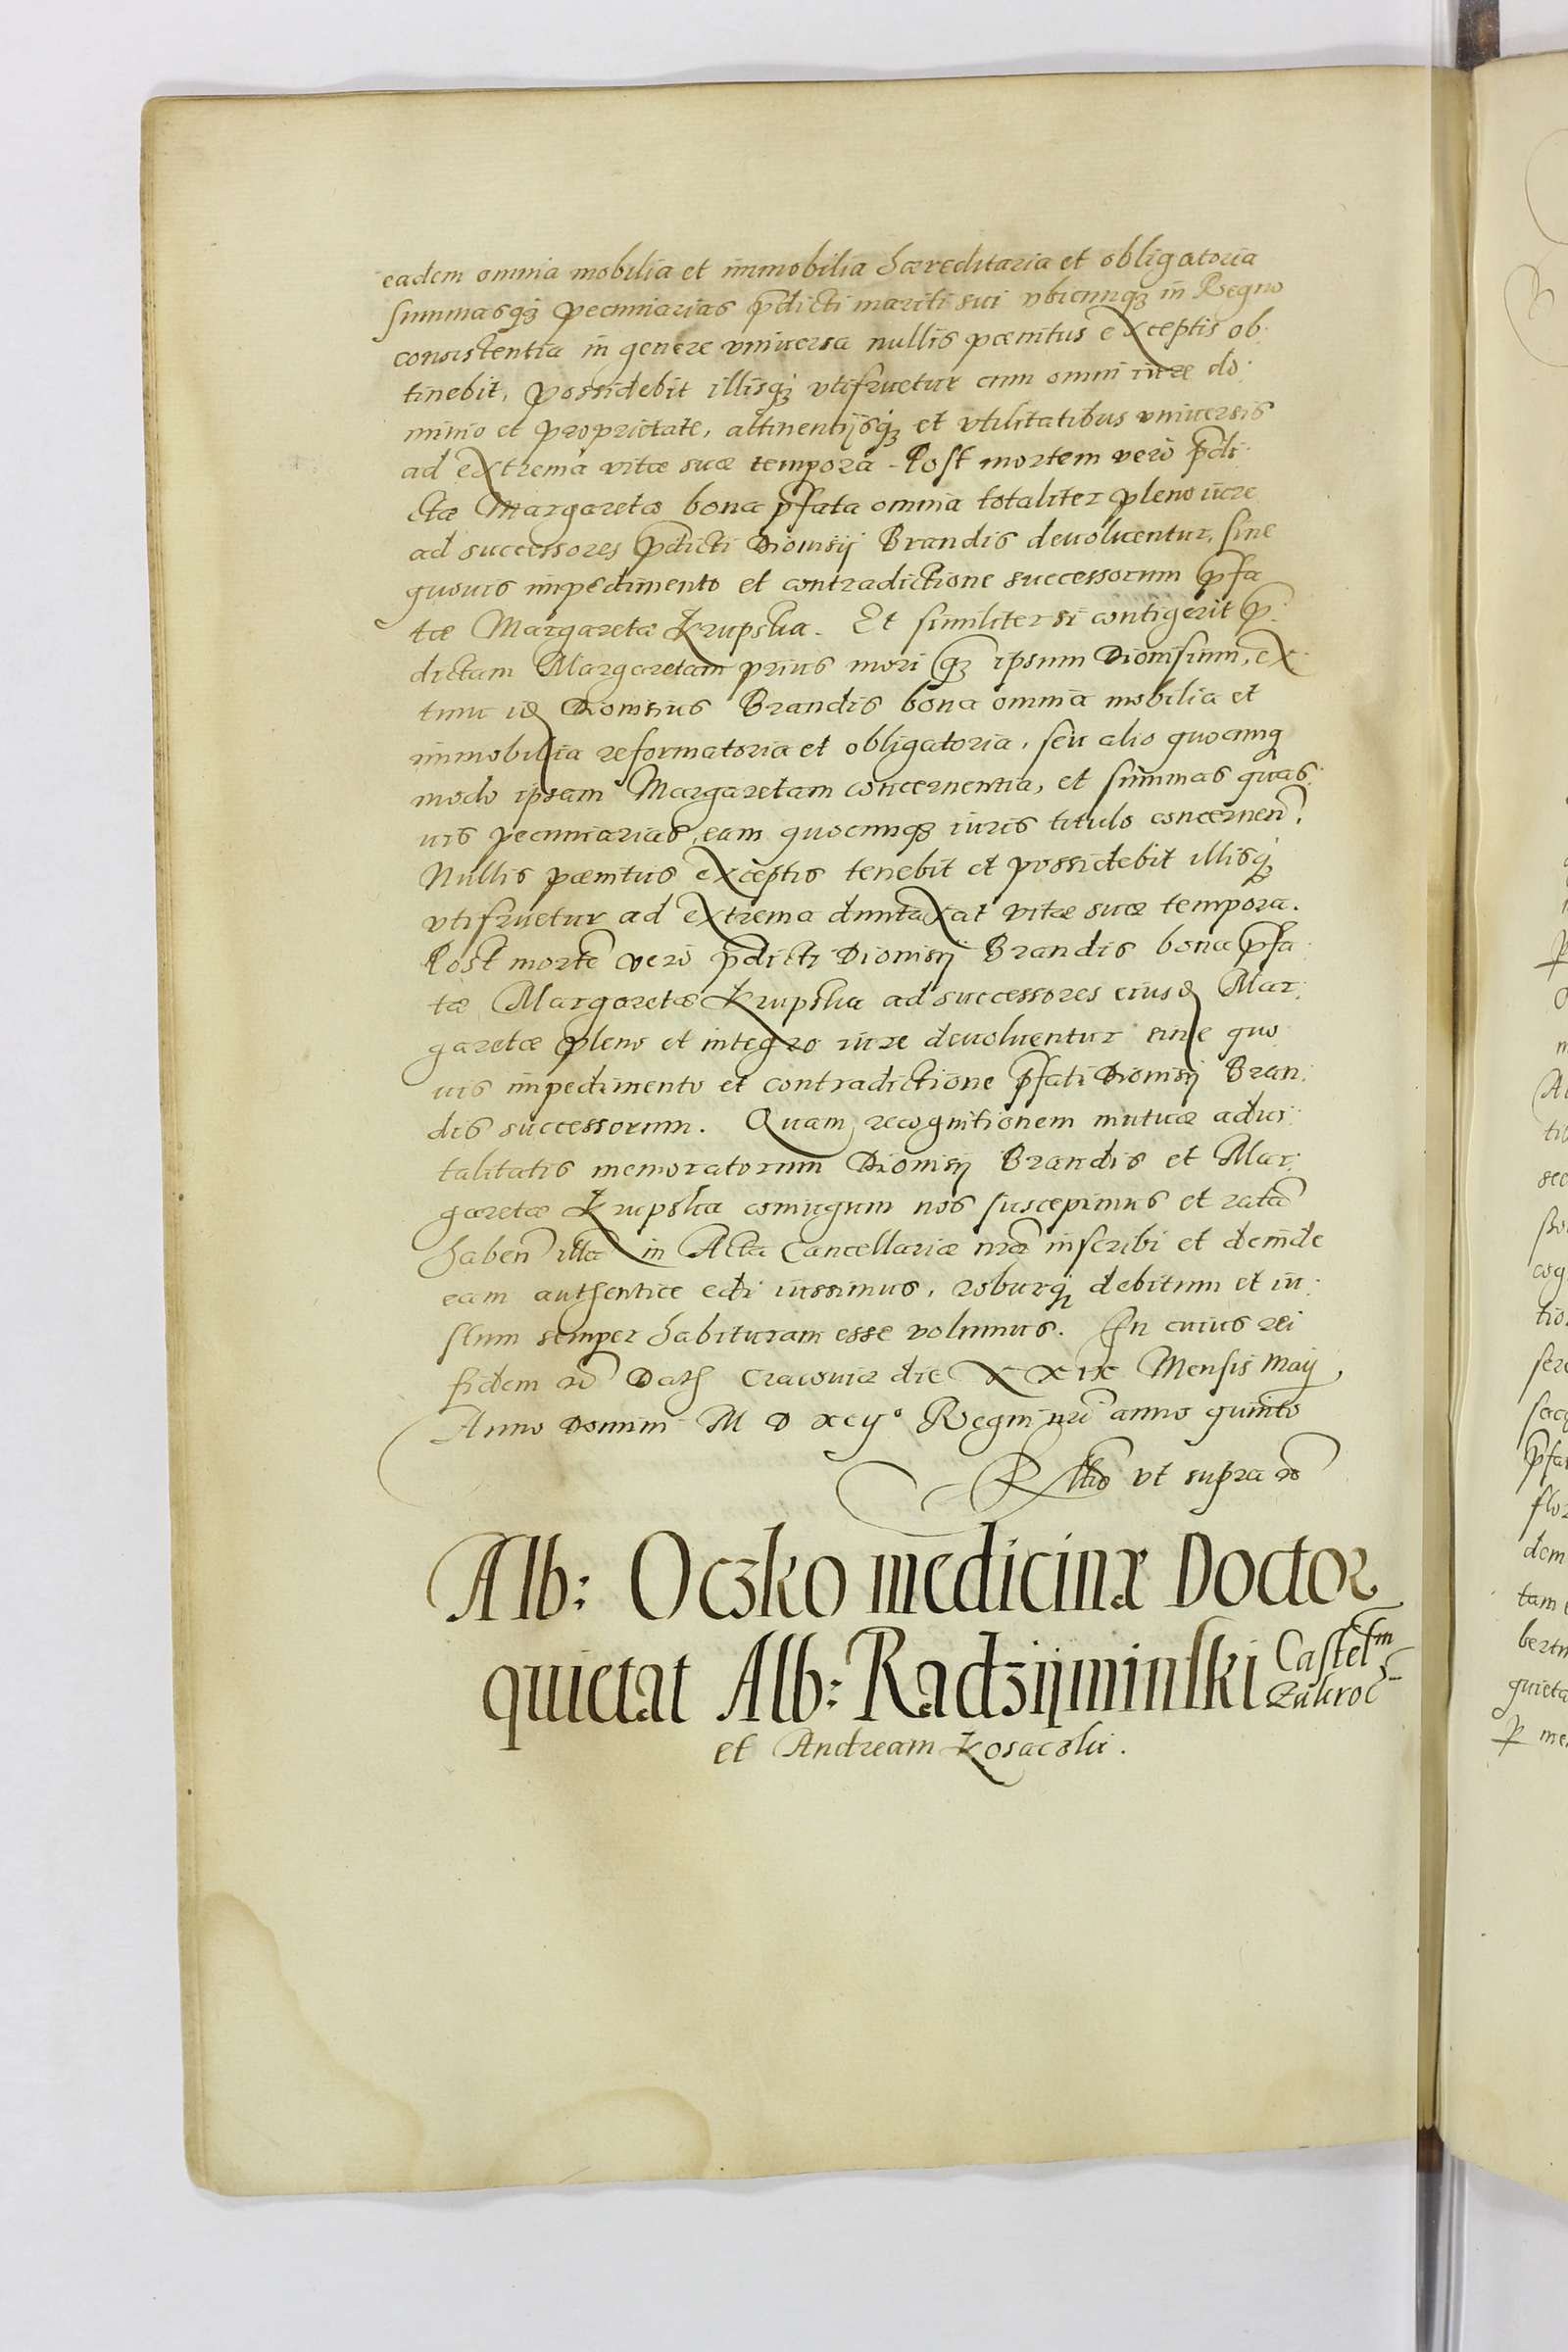 eadem omnia mobilia et immobilia hæreditaria et obligatoria
summasq₃ pecuniarias p̄dicti mariti sui vbicunq₃ in Regno
consistentia in genere vniuersa nullis pænitus exceptis ob:
tinebit, possidebit illisq₃ vtifruetur cum omni iure do:
minio et proprietate, attinentijsq₃ et vtilitatibus vniuersis
ad extrema vitæ suæ tempora. Post mortem verò p̄di:
ctæ Margaretæ bona p̄fata omnia totaliter pleno iure
ad successores p̄dicti Dionisij Brandis deuoluentur, sine
quouis impedimento et contradictione successorum p̄fa
tæ Margaretæ Krupska. Et similiter si contigerit p̄:
dictam Margaretam prius mori q₃ ipsum Dionisium, ex:
tunc idē Dionisius Brandis bona omnia mobilia et
immobilia reformatoria et obligatoria, seu alio quocunq₃
modo ipsam Margaretam concernentia, et summas quas:
uis pecuniarias, eam quocunq₃ iuris titulo concernen̄.
Nullis pænitus exceptis tenebit et possidebit illisq₃
vtifruetur ad extrema duntaxat vitæ suæ tempora.
Post mortē verò p̄dicti Dionisij Brandis bona p̄fa:
tæ Margaretæ Krupska ad successores eiusdē Mar:
garetæ pleno et integro iure deuoluentur sine quo
uis impedimento et contradictione p̄fati Dionisij Bran:
dis successorum. Quam recognitionem mutuæ adui:
talitatis memoratorum Dionisij Brandis et Mar:
garetæ Krupska coniugum nos suscepimus et ratā
haben̄ illā in Acta Cancellariæ nr̄æ inscribi et deinde
eam authentice edi iussimus, roburq₃ debitum et iu:
stum semper habituram esse volumus. In cuius rei
fidem rc̄ Dat Cracouiæ die XXIX Mensis Maij
Anno Domini M D xcij° Regni nr̄i anno quinto
Rltio vt supra rc̄
Alb: Oczko medicinæ Doctor
quietat Alb: Radzijminski Castelm
Zakroc
et Andream Kosacski.